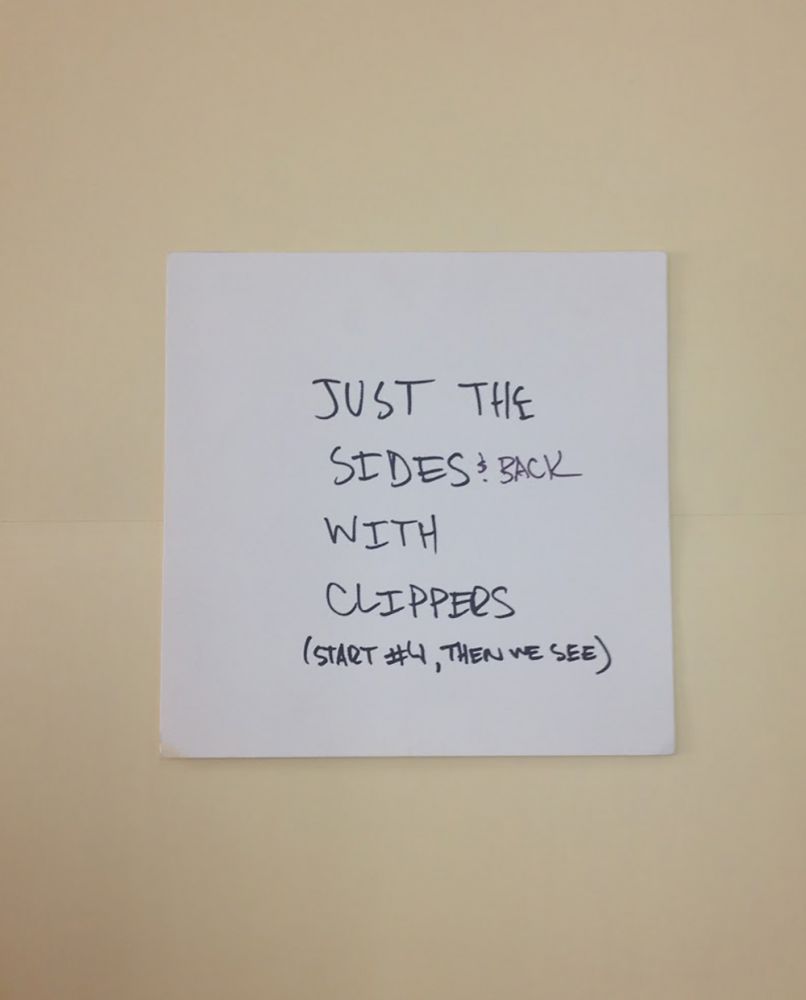 JUST THE
SIDES & BACK
WITH
CLIPPERS
(START #4, THEN WE SEE)